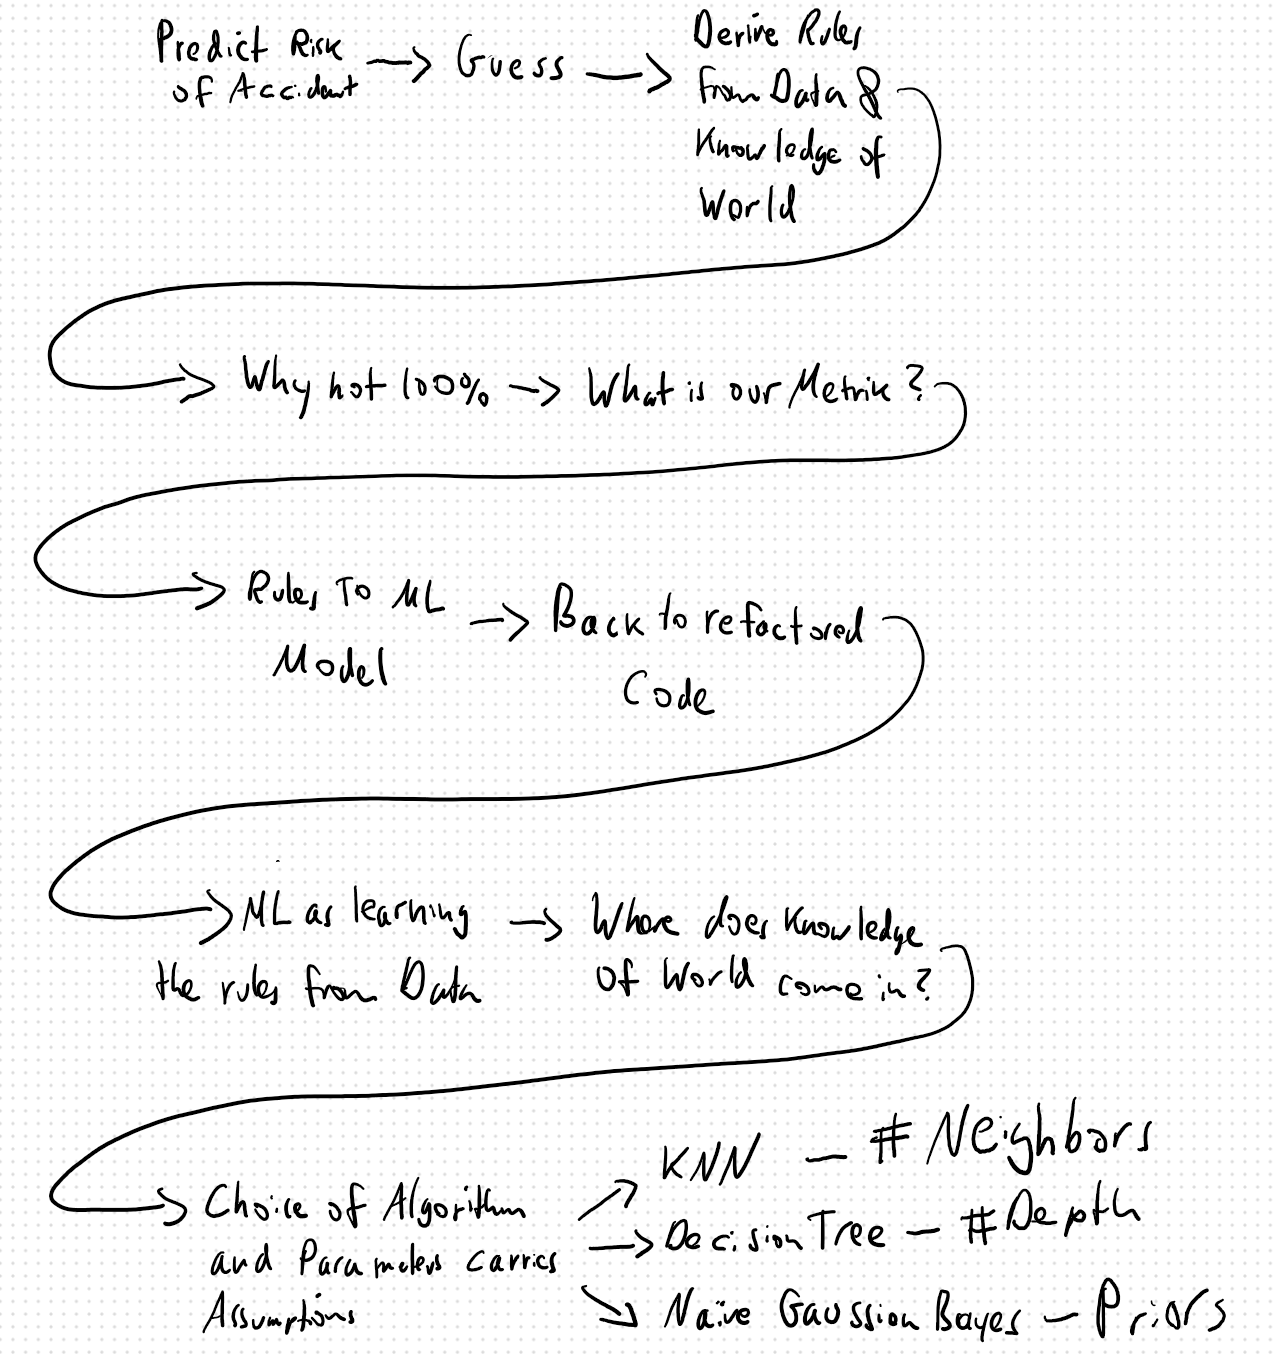 Predict Risk
of Accident
→ Guess →
Derive Rules
from Data &
Knowledge of
World
→ Why not 100% → What is our Metrik?
→ Rules To ML
Model
→ Back to refactored
Code
→ ML as learning
the rules from Data
→ Where does Knowledge
of World come in?
→ Choice of Algorithm
and Parameters carries
Assumptions
→ KNN – # Neighbors
→ Decision Tree – # Depth
→ Naïve Gaussion Bayes – Priors